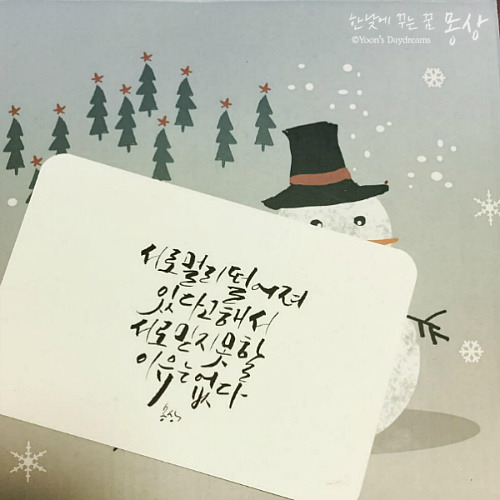 한낮에 꾸는 꿈 몽상
©Yoon's Daydreams
서로 멀리 떨어져
있다고 해서
서로 믿지 못할
이유는 없다
몽상